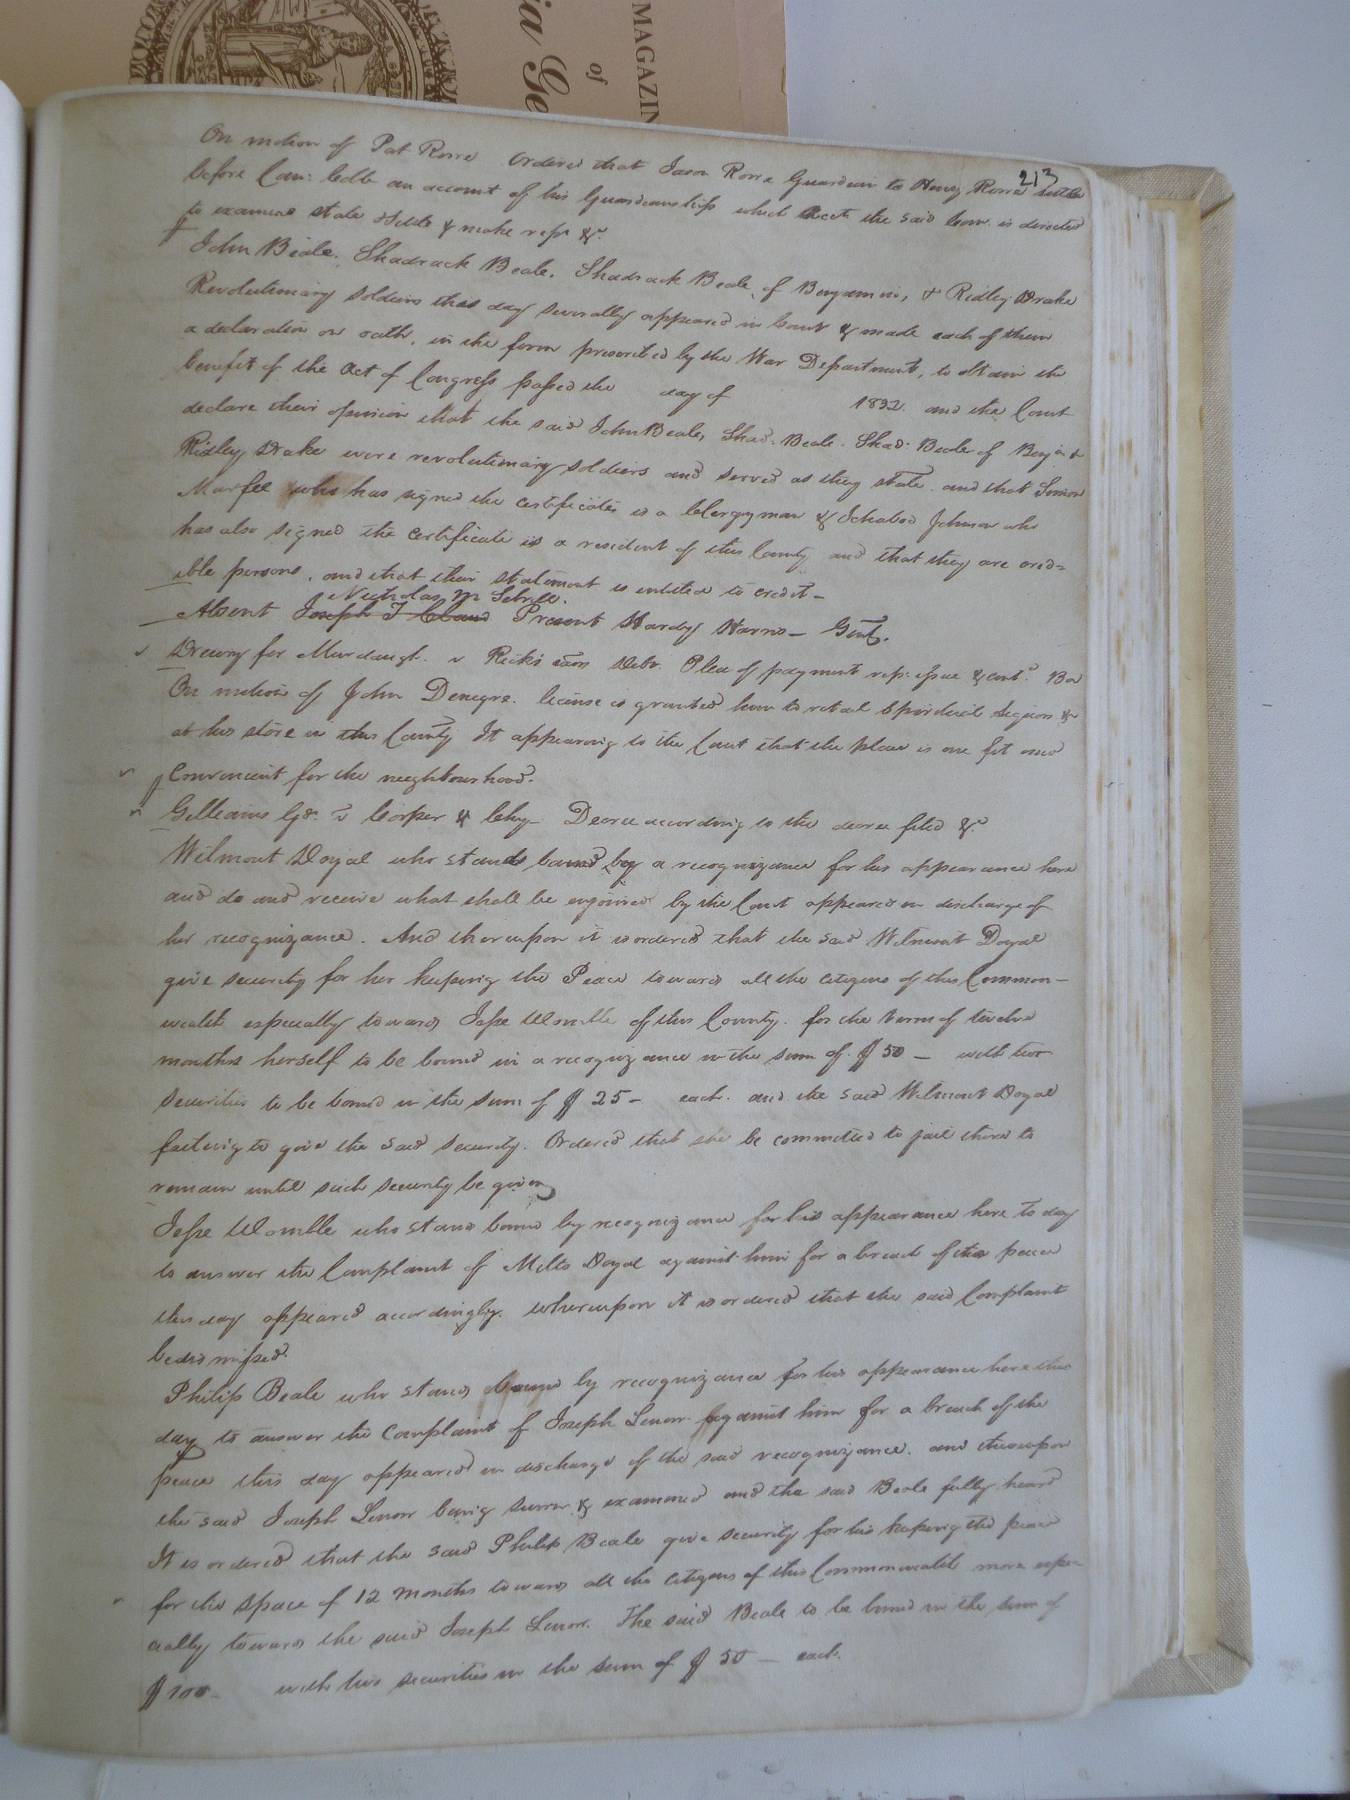 MAGAZIN
of
ia Ge
213
On motion of Pat Rorre Ordered that Jason Rorre Guardian to Henry Rorre settle
before Com: an account of his Guardianship which acct the said Com. is directed
to examine state settle & make repo &c
John Beale. Shadrack Beale. Shadrack Beale of Benjamin, & Ridley Drake
Revolutionary soldiers this day severally appeared in Court & made each of them
a declaration on oath, in the form prescribed by the War Department, to obtain the
benefit of the Act of Congress passed the day of 1832. and the Court
declare their opinion that the said John Beale, Shad. Beale. Shad. Beale of Benja &
Ridley Drake were revolutionary soldiers and served as they state. and that Simon
Murfee who has signed the certificates is a Clergyman & Ichabod Johnson who
has also signed the certificate is a resident of this County and that they are cred=
ible persons, and that their statement is entitled to credit –
Nicholas M Sebrell.
Absent Joseph T Claud Present Hardy Harris – Gent.
Drewry for Murdaugh. v Ricks exor Debt. Plea of payment rep: issue & cont.d
On motion of John Denegre. license is granted him to retail spirituous liquors &c
at his store in this County It appearing to the Court that the place is one fit and
convenient for the neighbourhood.
Gilliams Gd. v Corper & Chy – Decree according to the decree filed &c
Wilmont Doyal who stands bound by a recognizance for his appearance here
and do and receive what shall be enjoined by the Court appeared in discharge of
her recognizance. And thereupon it is ordered that the said Wilmont Doyal
give security for her keeping the Peace towards all the citizens of this Common –
wealth especially towards Jesse Womble of this County. for the term of twelve
months herself to be bound in a recognizance in the sum of $ 50 – with two
securities to be bound in the sum of $ 25 – each. and the said Wilmont Doyal
failing to give the said security. Ordered that she be committed to jail there to
remain until such security be given
Jesse Womble who stand bound by recognizance for his appearance here to day
to answer the Complaint of Mills Doyal against him for a breach of the peace
this day appeared accordingly. whereupon it is ordered that the said Complaint
be dismissed.
Philip Beale who stands bound by recognizance for his appearance here this
day to answer the Complaint of Joseph Lenow against him for a breach of the
peace this day appeared in discharge of the said recognizance. and thereupon
the said Joseph Lenow being sworn & examined and the said Beale fully heard
It is ordered that the said Philip Beale give security for his keeping the peace
for the space of 12 months towards all the citizens of this Commonwealth more espe-
cially towards the said Joseph Lenow. The said Beale to be bound in the sum of
$ 100 – with two securities in the sum of $ 50 – each.